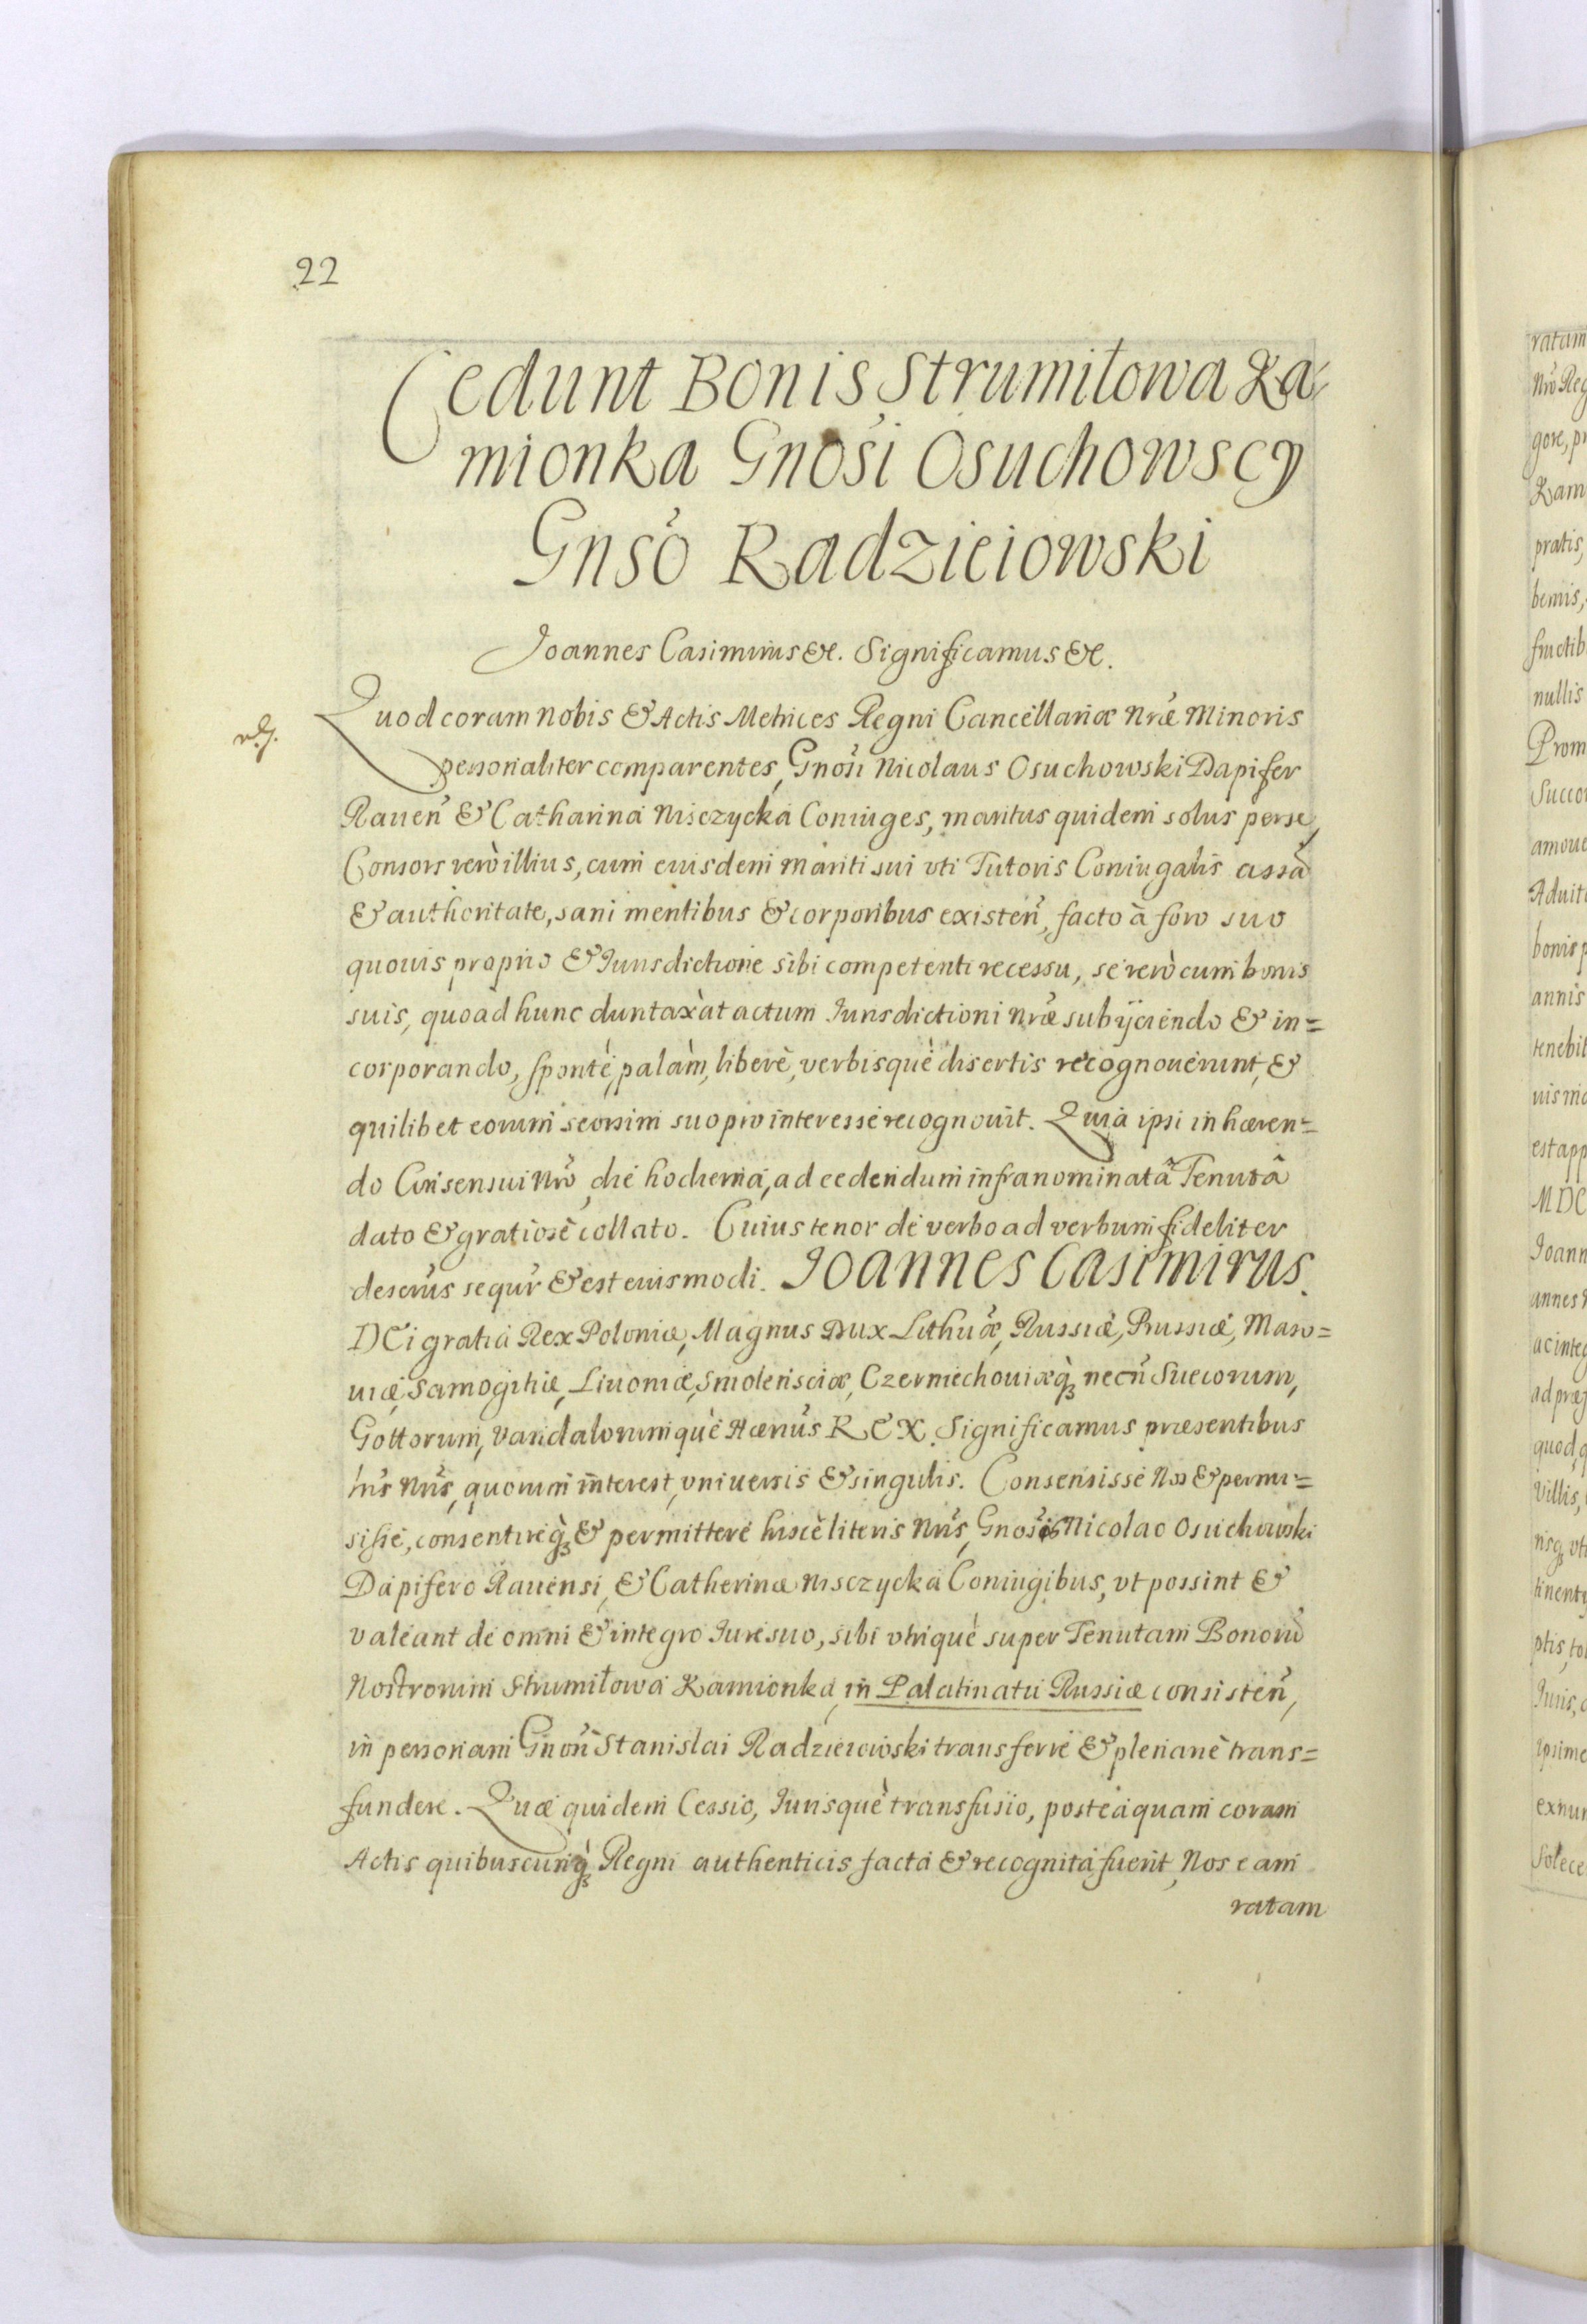 22
Cedunt Bonis Strumiłowa Ka-
mionka Gnosi Osuchowscy
Gnso Radzieiowski
Joannes Casimirus &c. Significamus &c.
Quod coram nobis & Actis Metrices Regni Cancellariæ Nræ Minoris
personaliter comparentes, Gnosi Nicolaus Osuchowski Dapifer
Rauen & Catharina Misczycka Coniuges, maritus quidem solus per se,
Consors verò illius, cum euisdem mariti sui vti Tutoris Coniugalis assã
& authoritate, sani mentibus & corporibus existen, facto à foro suo
quouis proprio & Iurisdictione sibi competenti recessu, se verò cum bonis
suis, quoad hunc duntaxàt actum Iurisdictioni Nræ subijciendo & in=
corporando, spontè, palàm, liberè, verbisquè disertis recognouerunt, &
quilibet eorum seorsim suo pro interesse recognouit. Quia ipsi inhæren=
do Consensui Nro, die hodierna, ad cedendum infranominatã Tenutã
dato & gratiosè collato. Cuius tenor de verbo ad verbum fideliter
descrus sequr & est euismodi. Joannes Casimirus.
DEi gratia Rex Poloniæ, Magnus Dux Lithuæ, Russiæ, Prussiæ, Maso=
uiæ, Samogitiæ, Liuoniæ, Smolensciæ, Czerniechouiæq3 necn Suecorum,
Gottorum, Vandalorumquè Hærus REX. Significamus præsentibus
lris Nris, quorum interest, vniuersis & singulis. Consensisse Nos & permi=
sisse, consentireq3 & permittere hiscè literis Nris, Gnosis Nicolao Osuchowski
Dapifero Rauensi, & Catherinæ Misczycka Coniugibus, vt possint &
valeant de omni & integro Iure suo, sibi vtriquè super Tenutam Bonorũ
Nostrorum Strumiłowa Kamionka, in Palatinatu Russiæ consisten,
in personam Gnon Stanislai Radzieiowski transferre & plenariè trans=
fundere. Quæ quidem Cessio, Iurisquè transfusio, posteaquam coram
Actis quibuscunq3 Regni authenticis facta & recognita fuerit, Nos eam
ratam